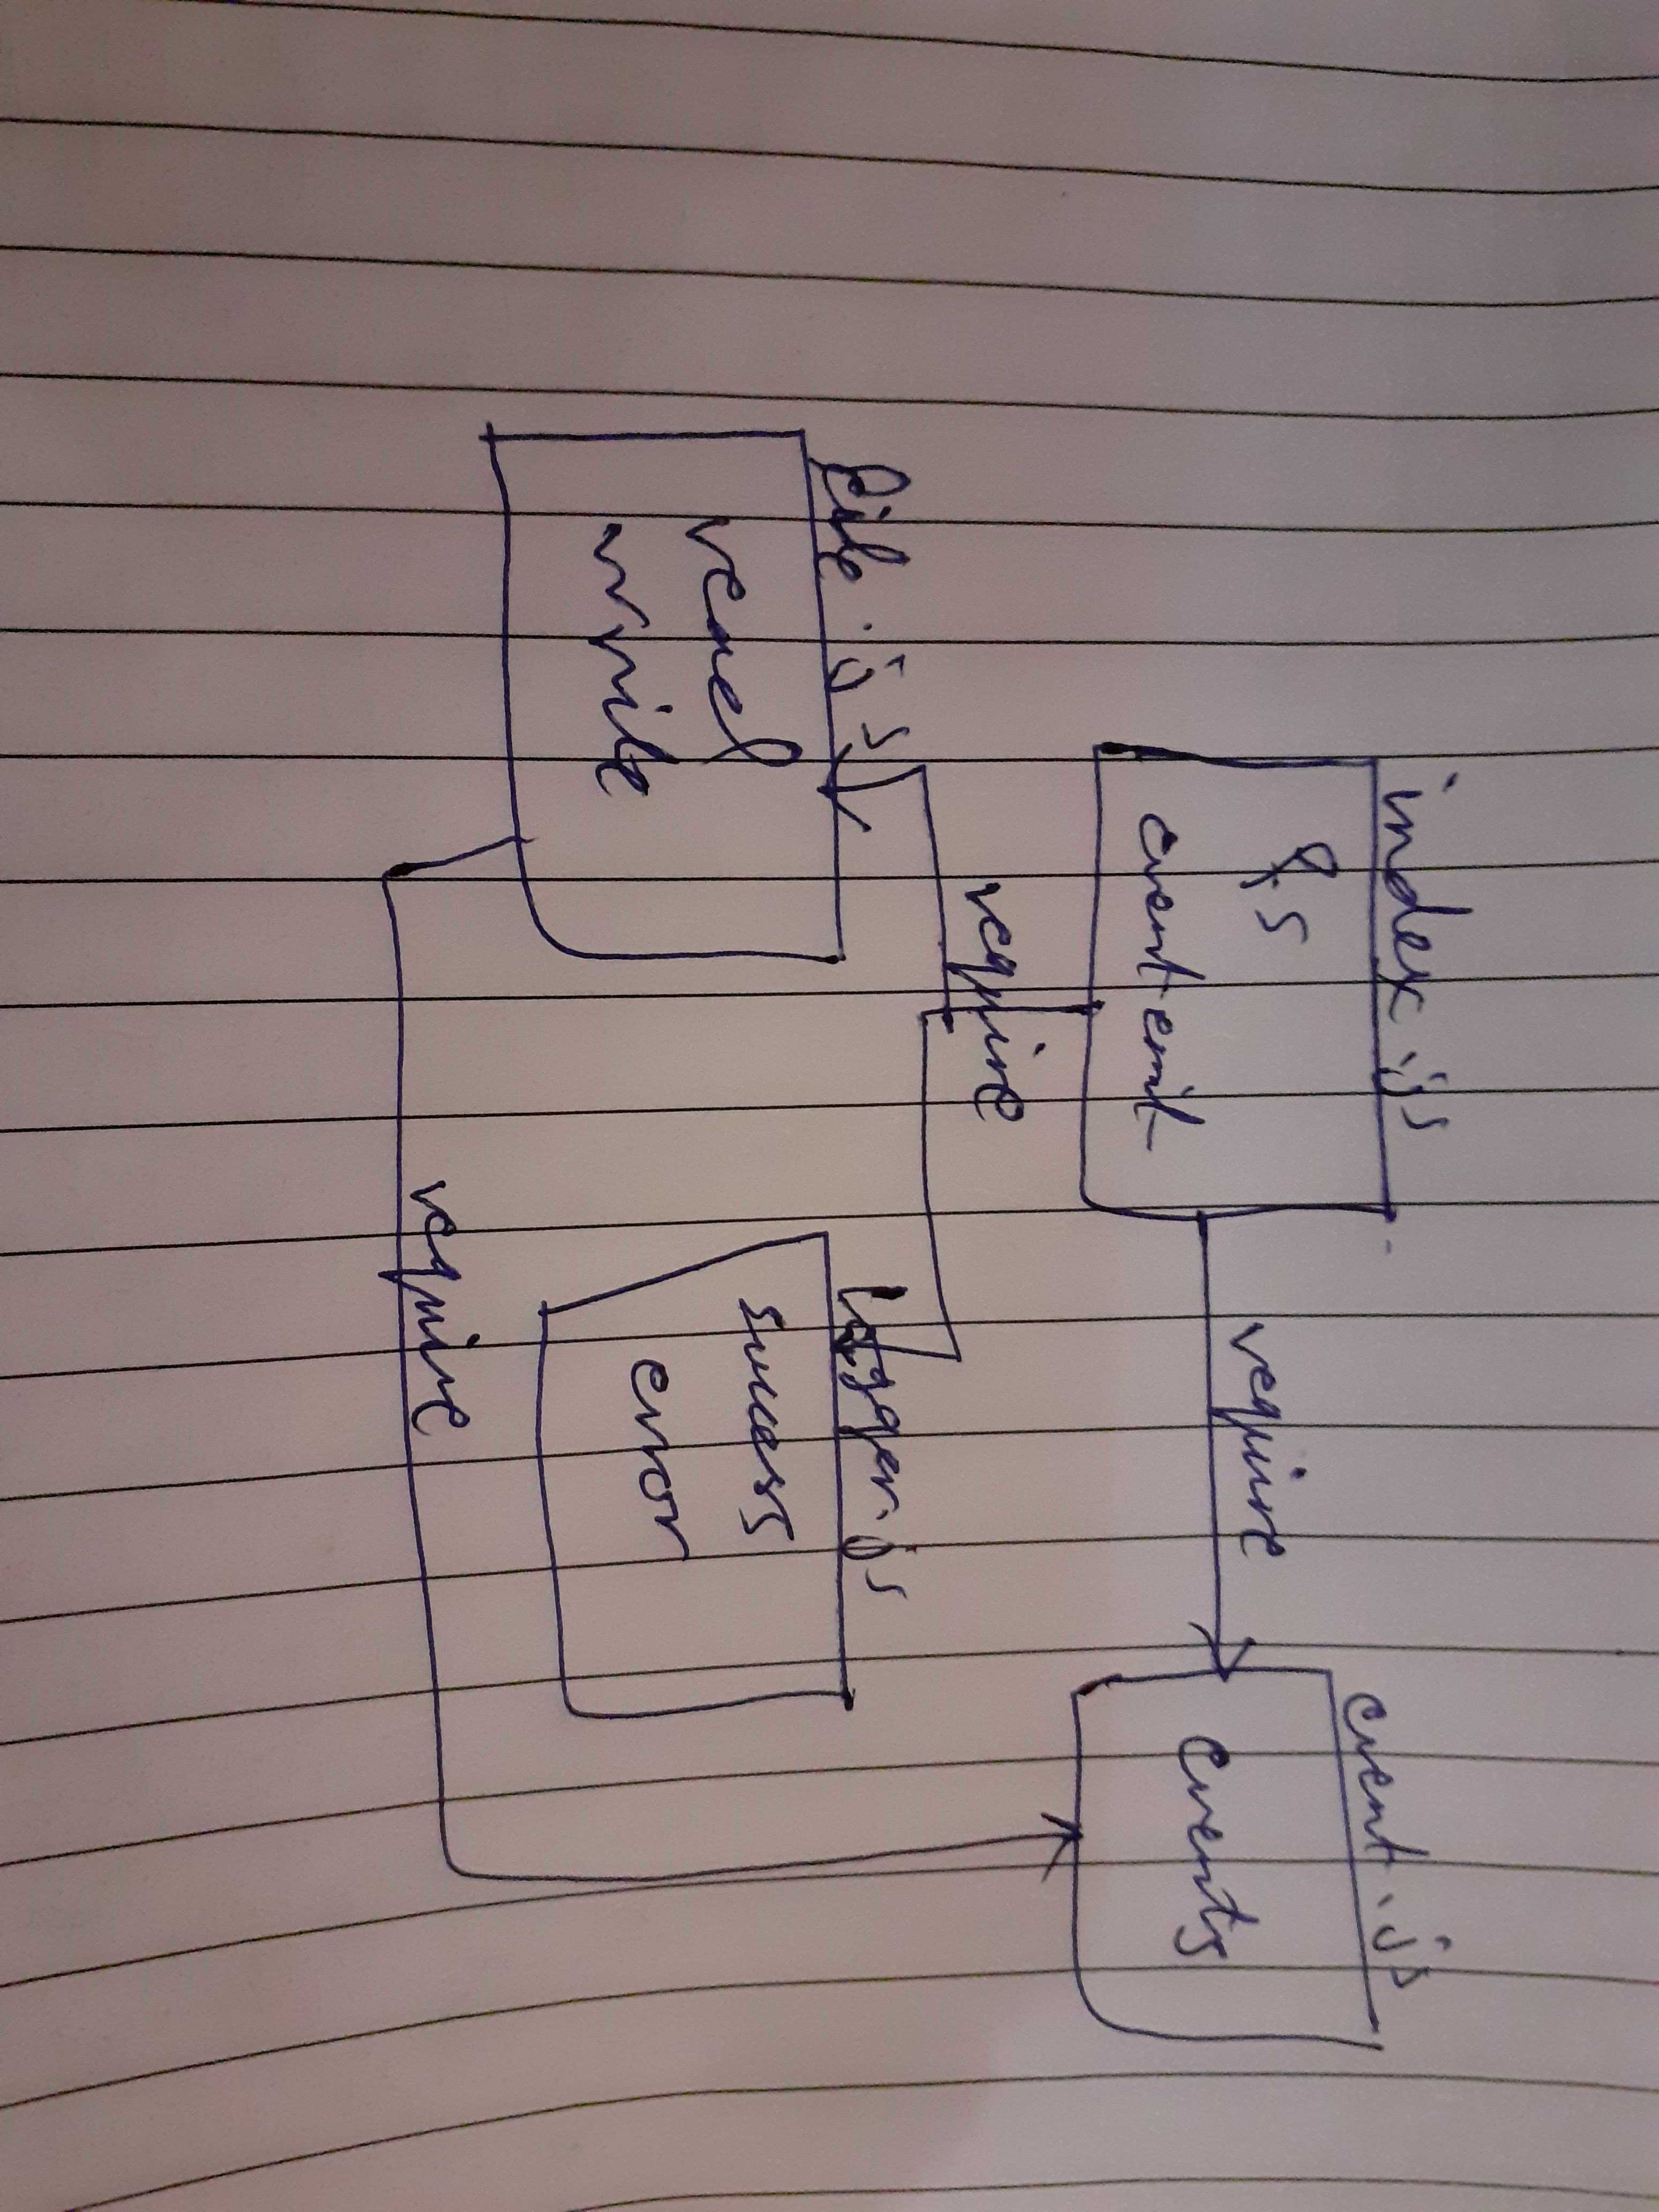 index.js
fs
event emit
require
event.js
events
require
file.js
read
write
logger.js
success
error
require